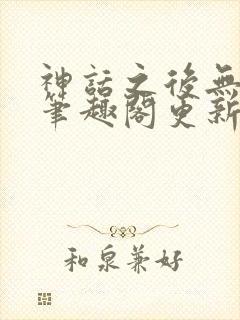 神話之後無
筆趣閣更新
和泉兼好